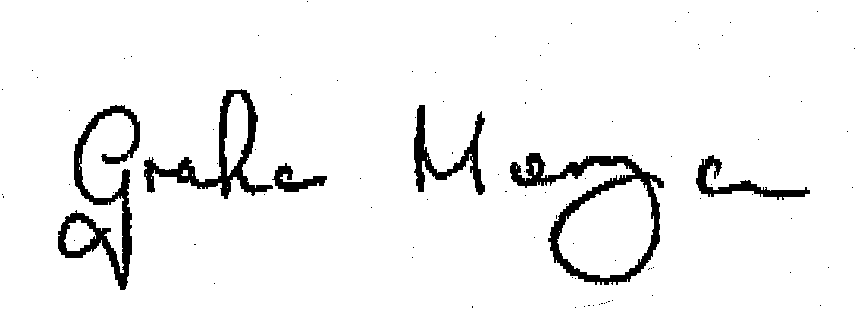 Graha Morgan